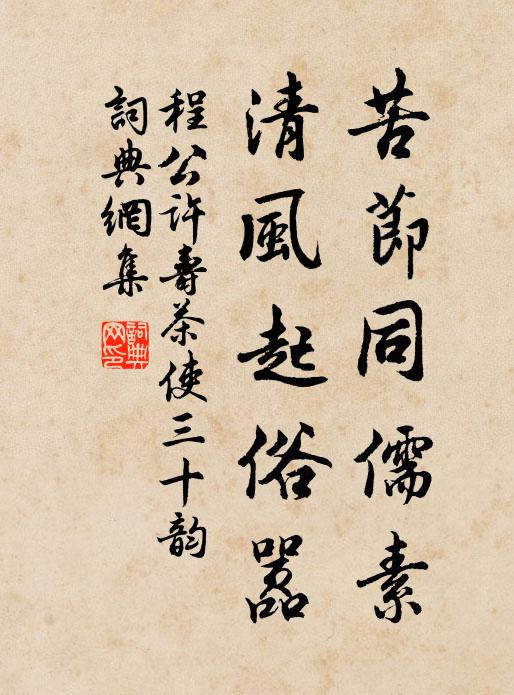 苦節同儒素
清風起俗嚣
程公許壽茶使三十韵
詞典網集
詞典
网印